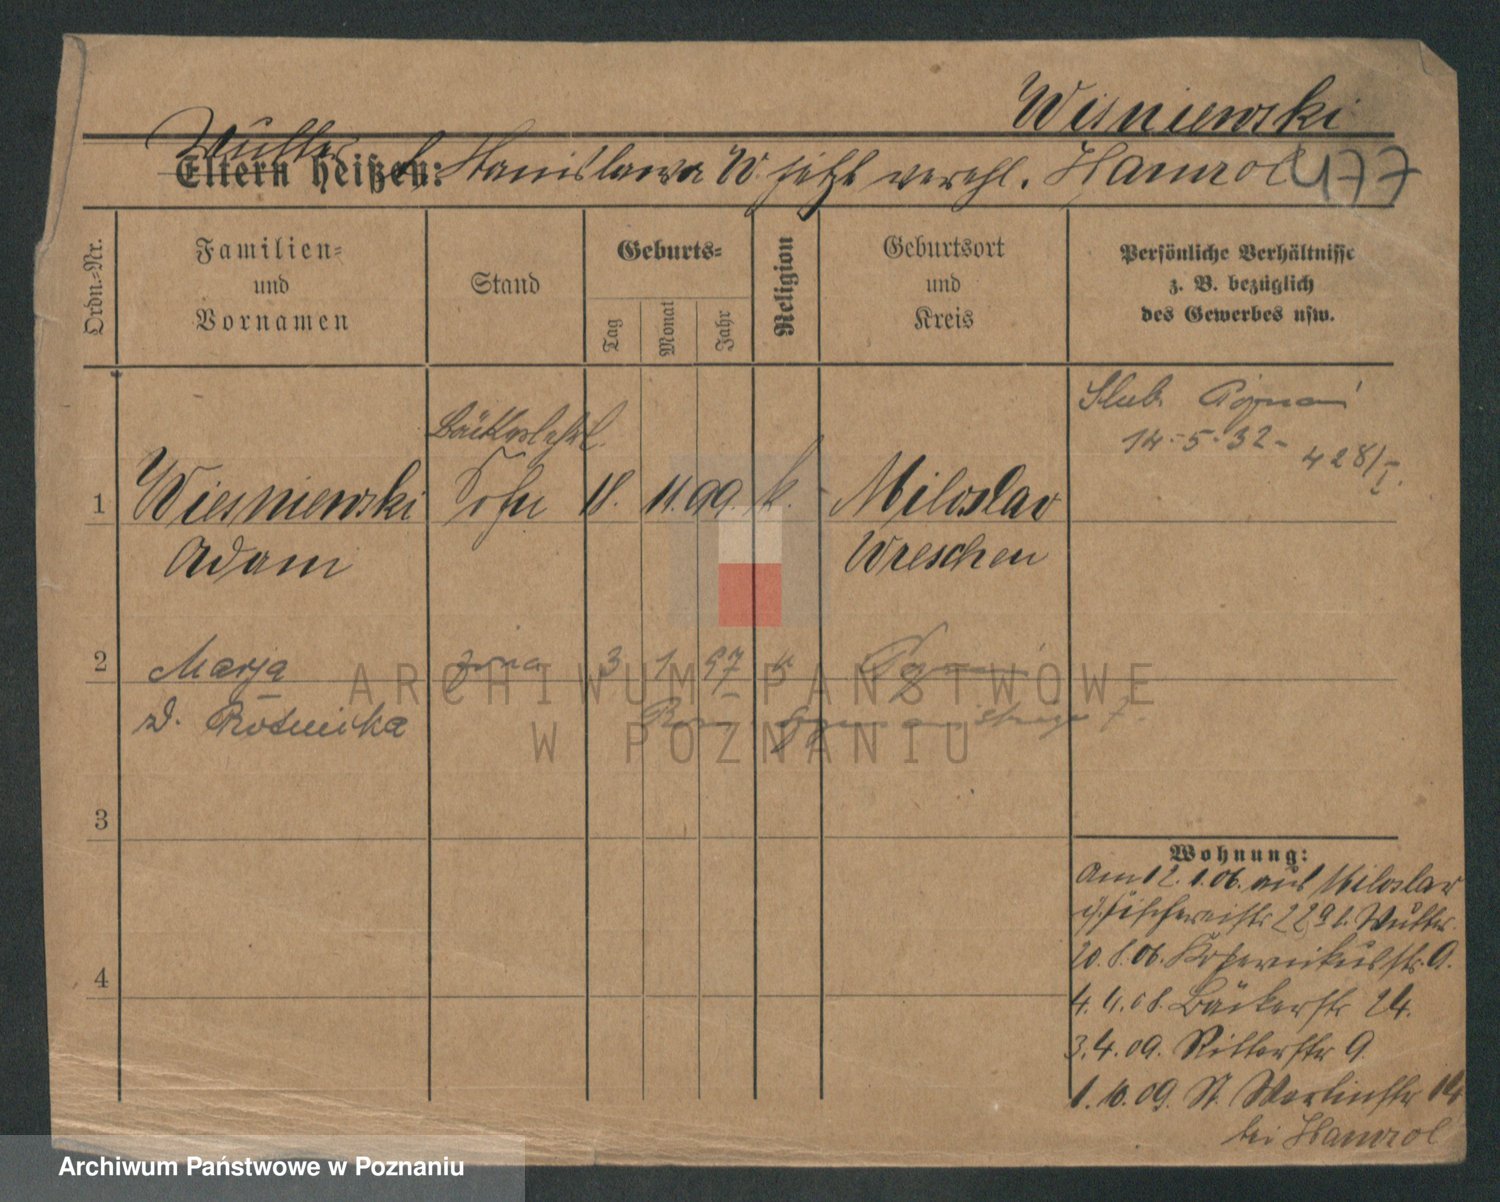 Wisniewski
Mutter
Eltern heißen: Stanislawa W. jetzt verehl. Hamrol 477
Ordn.-Nr.
Familien-
und
Vornamen
Stand
Geburts-
Tag
Monat
Jahr
Religion
Geburtsort
und
Kreis
Persönliche Verhältnisse
z. B. bezüglich
des Gewerbes usw.
Ślub Poznań
14-5-32-
428/I.
Bäckerlehrl.
1 Wiesniewski Sohn 18. 11. 99. k. Miloslaw
Adam Wreschen
2 Marja żona 3 1 97 k
d. Rośnicka
3
4
Wohnung:
Am 12. 1. 06. aus Miloslaw
Fischereistr 22a b. Mutter
20. 8. 06. Kopernikusstr. 9.
4. 4. 08. Bäckerstr 24.
3. 4. 09. Ritterstr 9
1. 10. 09. St. Martinstr 14
bei Hamrol
ARCHIWUM PAŃSTWOWE
W POZNANIU
Archiwum Państwowe w Poznaniu